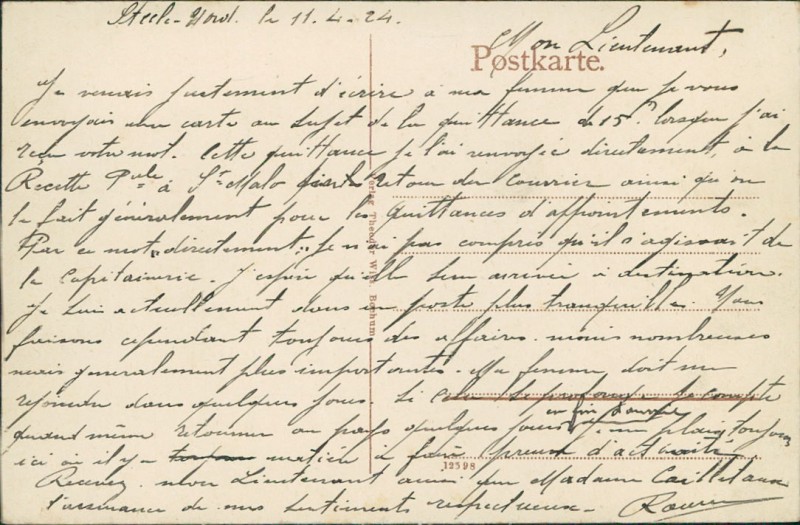 Steele-Nord. le 11.4.24.
Mon Lieutenant,
Postkarte.
Je venais justement d'écrire à ma femme que je vous
envoyais une carte au sujet de la quittance de 15 f. lorsque j'ai
reçu votre mot. Cette quittance je l'ai renvoyée directement, à la
Recette Pale à St Malo par le retour du courrier ainsi qu'on
le fait généralement pour les quittances d'appointements.
Par ce mot "directement" Je n'ai pas compris qu'il s'agissait de
la Capitainerie. J'espère qu'elle sera arrivée à destination.
Je suis actuellement dans un poste plus tranquille. Nous
faisons cependant toujours des affaires. moins nombreuses
mais généralement plus importantes. Ma femme doit me
rejoindre dans quelques jours. Si je compte
quand même retourner au pays quelques jours en fin d'année
Je me plais toujours
ici où il y a matière à faire preuve d'activité
Recevez mon Lieutenant ainsi que Madame
l'assurance de mes sentiments respectueux
Verlag Theodor Wirtz Bochum
12598